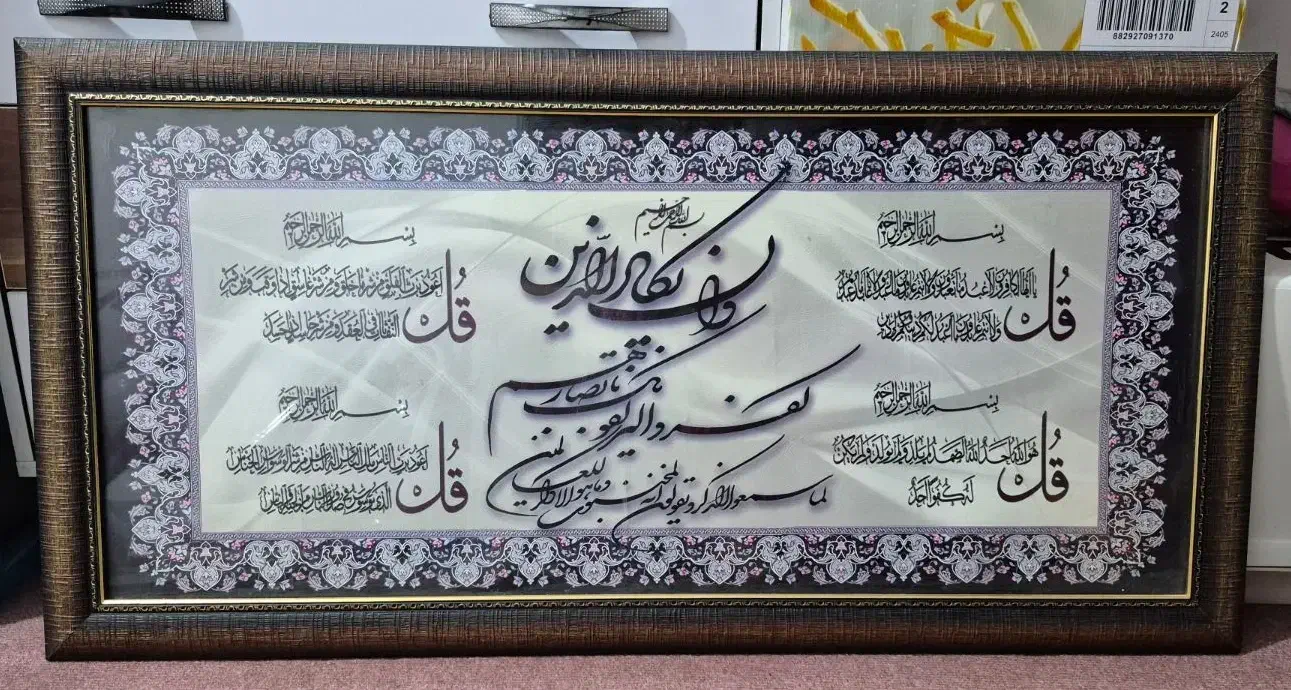 2
882927091370
2405
بسم الله الرحمن الرحيم
وان يكاد الذين
كفروا ليزلقونك بابصارهم
لما سمعوا الذكر ويقولون انه لمجنون وما هو الا ذكر للعالمين
بسم الله الرحمن الرحيم
قل يا ايها الكافرون لا اعبد ما تعبدون ولا انتم عابدون ما اعبد ولا انا عابد ما عبدتم
ولا انتم عابدون ما اعبد لكم دينكم ولي دين
بسم الله الرحمن الرحيم
قل هو الله احد الله الصمد لم يلد ولم يولد ولم يكن
له كفوا احد
بسم الله الرحمن الرحيم
قل اعوذ برب الفلق من شر ما خلق ومن شر غاسق اذا وقب ومن شر
النفاثات في العقد ومن شر حاسد اذا حسد
بسم الله الرحمن الرحيم
قل اعوذ برب الناس ملك الناس اله الناس من شر الوسواس الخناس
الذي يوسوس في صدور الناس من الجنة والناس